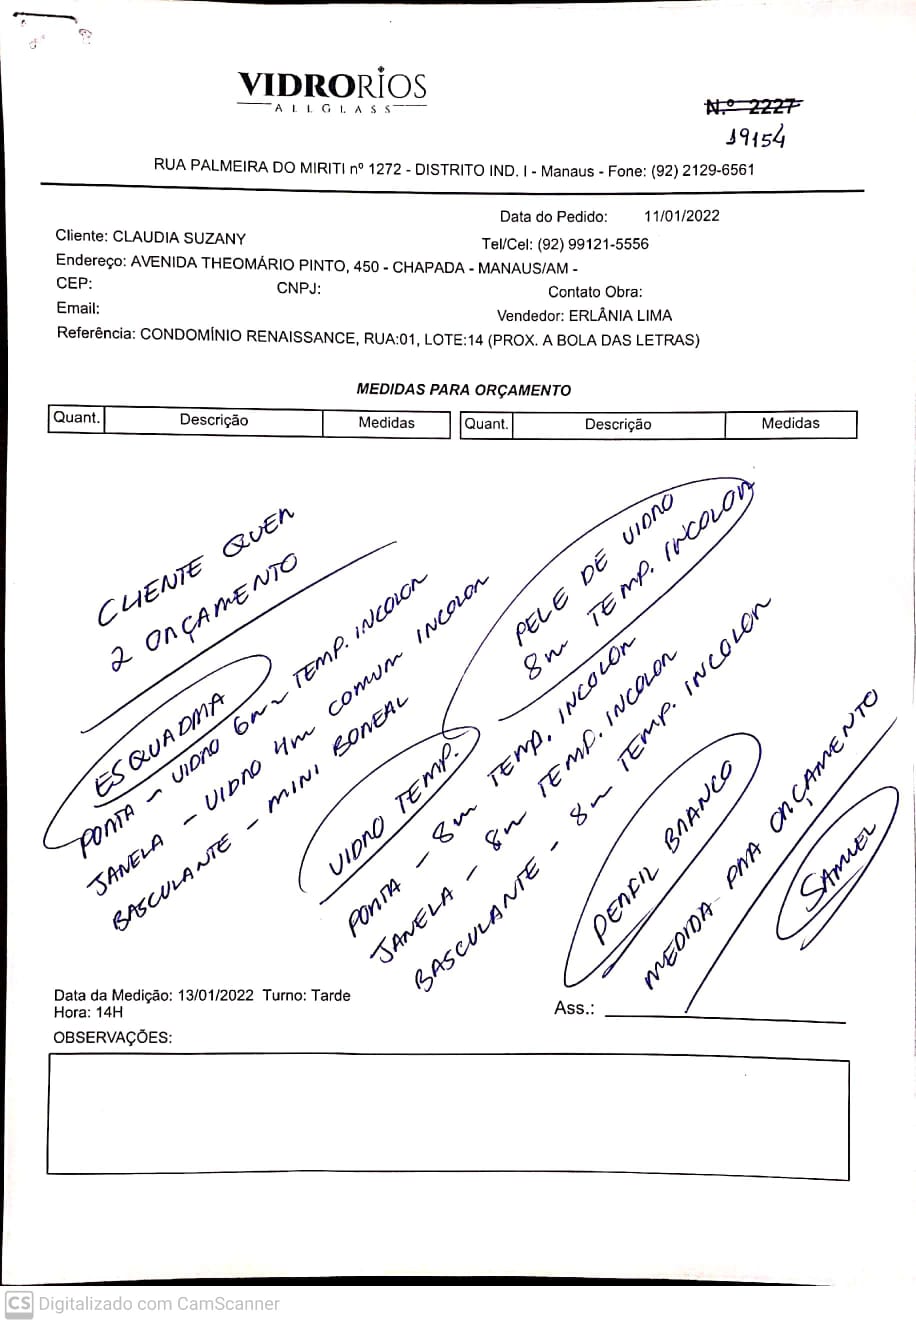 VIDRORIOS
ALLGLASS
N.º 2227
19154
RUA PALMEIRA DO MIRITI nº 1272 - DISTRITO IND. I - Manaus - Fone: (92) 2129-6561
Data do Pedido: 11/01/2022
Cliente: CLAUDIA SUZANY
Tel/Cel: (92) 99121-5556
Endereço: AVENIDA THEOMÁRIO PINTO, 450 - CHAPADA - MANAUS/AM -
CEP:
CNPJ:
Contato Obra:
Email:
Vendedor: ERLÂNIA LIMA
Referência: CONDOMÍNIO RENAISSANCE, RUA:01, LOTE:14 (PROX. A BOLA DAS LETRAS)
MEDIDAS PARA ORÇAMENTO
Quant. Descrição Medidas Quant. Descrição Medidas
CLIENTE QUER
2 ORÇAMENTO
ESQUADRIA
PORTA - VIDRO 6m TEMP. INCOLOR
JANELA - VIDRO 4m COMUM INCOLOR
BASCULANTE - MINI BOREAL
PELE DE VIDRO
8m TEMP. INCOLOR
VIDRO TEMP.
PORTA - 8m TEMP. INCOLOR
JANELA - 8m TEMP. INCOLOR
BASCULANTE - 8m TEMP. INCOLOR
PERFIL BRANCO
MEDIDA PRA ORÇAMENTO
SAMUEL
Data da Medição: 13/01/2022 Turno: Tarde
Hora: 14H
Ass.:
OBSERVAÇÕES:
CS Digitalizado com CamScanner